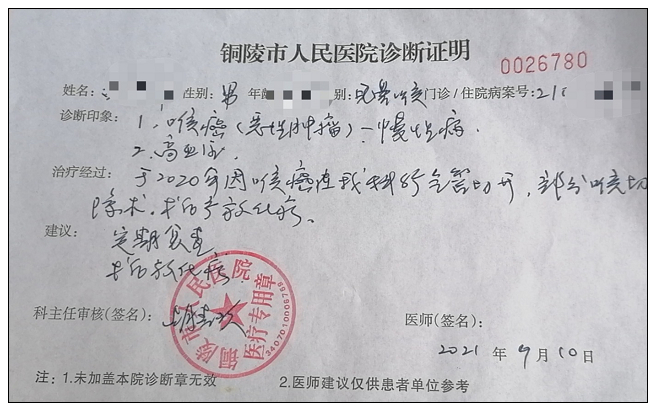 铜陵市人民医院诊断证明
0026780
姓名: 性别: 男 年龄 别: 耳鼻喉 门诊/住院病案号: 21
诊断印象: 1. 喉癌(恶性肿瘤)-慢性病.
2. 高血压.
治疗经过: 于2020年因喉癌在我科行气管切开, 部分喉切
除术. 术后予放化疗。
建议: 定期复查
术后放化疗
科主任审核(签名):
医师(签名):
铜陵市人民医院
医疗专用章
2021 年 9 月 10 日
注: 1.未加盖本院诊断章无效 2.医师建议仅供患者单位参考